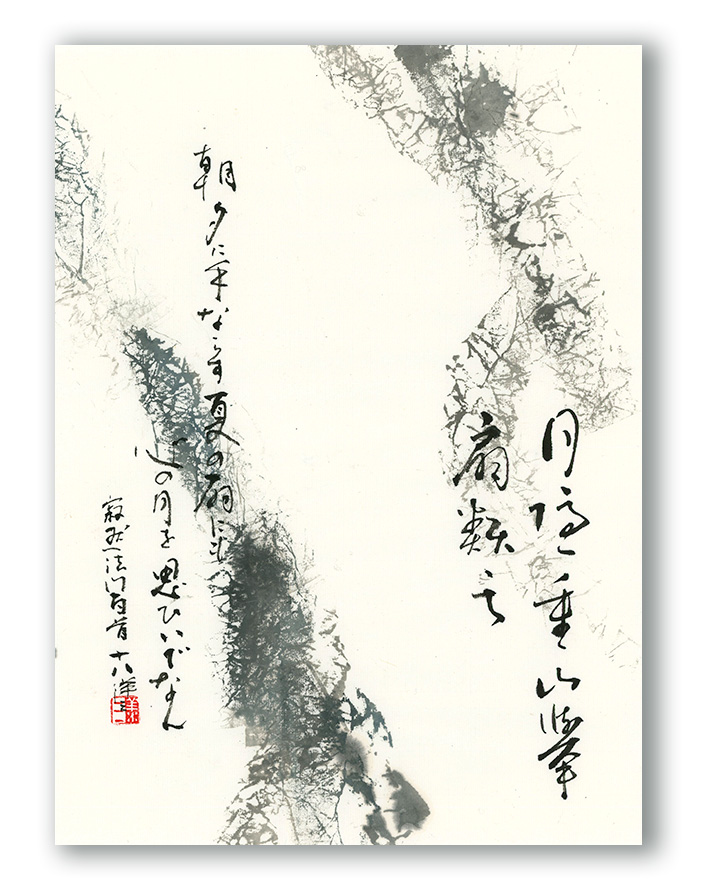 月隠重山擧
扇類之
朝夕に手ならす夏の扇にも
心の月を思ひいでなん
寂然法門百首 十八